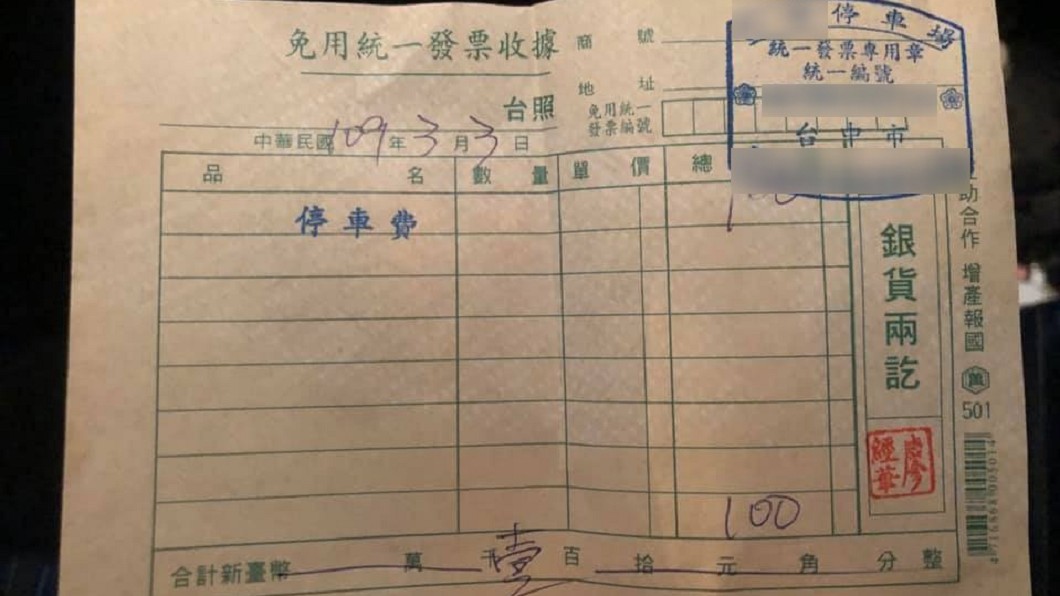 免用統一發票收據
商號
停車場
統一發票專用章
統一編號
台中市
地址
台照
免用統一
發票編號
中華民國109年3月3日
品名 數量 單價 總
停車費
100
銀貨兩訖
互助合作 增產報國
萬
501
100
合計新臺幣 萬 仟 壹 百 拾 元 角 分 整